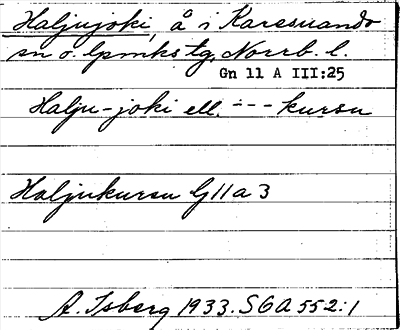 Haljujoki, å i Karesuando
sn o. lpmks tg, Norrb. l.
Gn 11 A III:25
Halju-joki ell. --- kursu
Haljukursu G 11 a 3
A. Isberg 1933. SGA 552:1